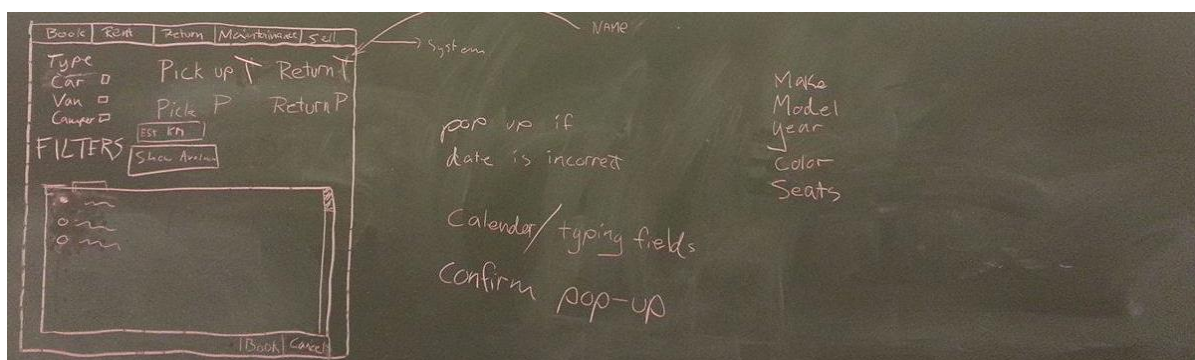 Book Rent Return Maintainance Sell
Type
Car
Van
Camper
Pick up T Return T
Pick P Return P
Est KM
FILTERS
Show
Book Cancel
NAME
System
pop up if
date is incorrect
Calender/typing fields
Confirm pop-up
Make
Model
Year
Color
Seats